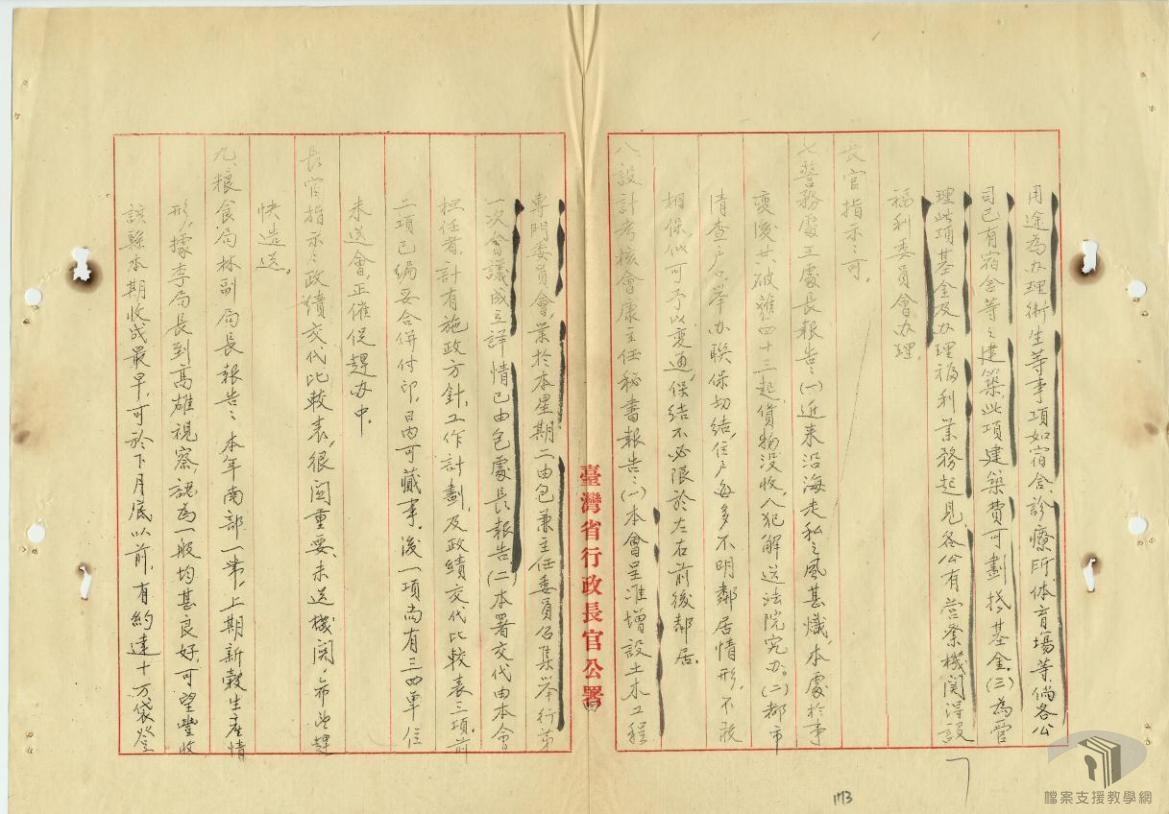 用途為办理衛生等事項如宿舍、診療所、体育場等、倘各公
司已有宿舍等之建築、此項建築費可劃撥基金。(三)為管
理此項基金及办理福利業務起見、各公有营業機関得設
福利委員會办理。
長官指示：可。
七、警務處王處長報告：(一)近来沿海走私之風甚熾、本處於事
變後共破獲四十三起、貨物没收、人犯解送法院究办。(二)都市
清查户口、举办联保切结、住户每多不明鄰居情形、不敢
相保、似可予以变通、保结不必限於左右前後鄰居。
八、設計考核會康主任秘書報告：(一)本會呈准增設土木工程
臺灣省行政長官公署
專門委員會、業於本星期二由包兼主任委員召集举行第
一次會議成立、詳情已由包處長報告。(二)本署交代由本會
担任者、計有施政方針、工作計劃、及政績交代比較表三項、前
二項已編妥合併付印、日內可蕆事。後一項尚有三四單位
未送會、正催促趕办中。
長官指示：政績交代比較表、很関重要、未送機関、希望趕
快造送。
九、粮食局林副局長報告：本年南部一带、上期新穀生産情
形、據李局長到高雄視察、認為一般均甚良好、可望豐收
該縣本期收成最早、可於下月底以前、有約達十万袋登
173
檔案支援教學網